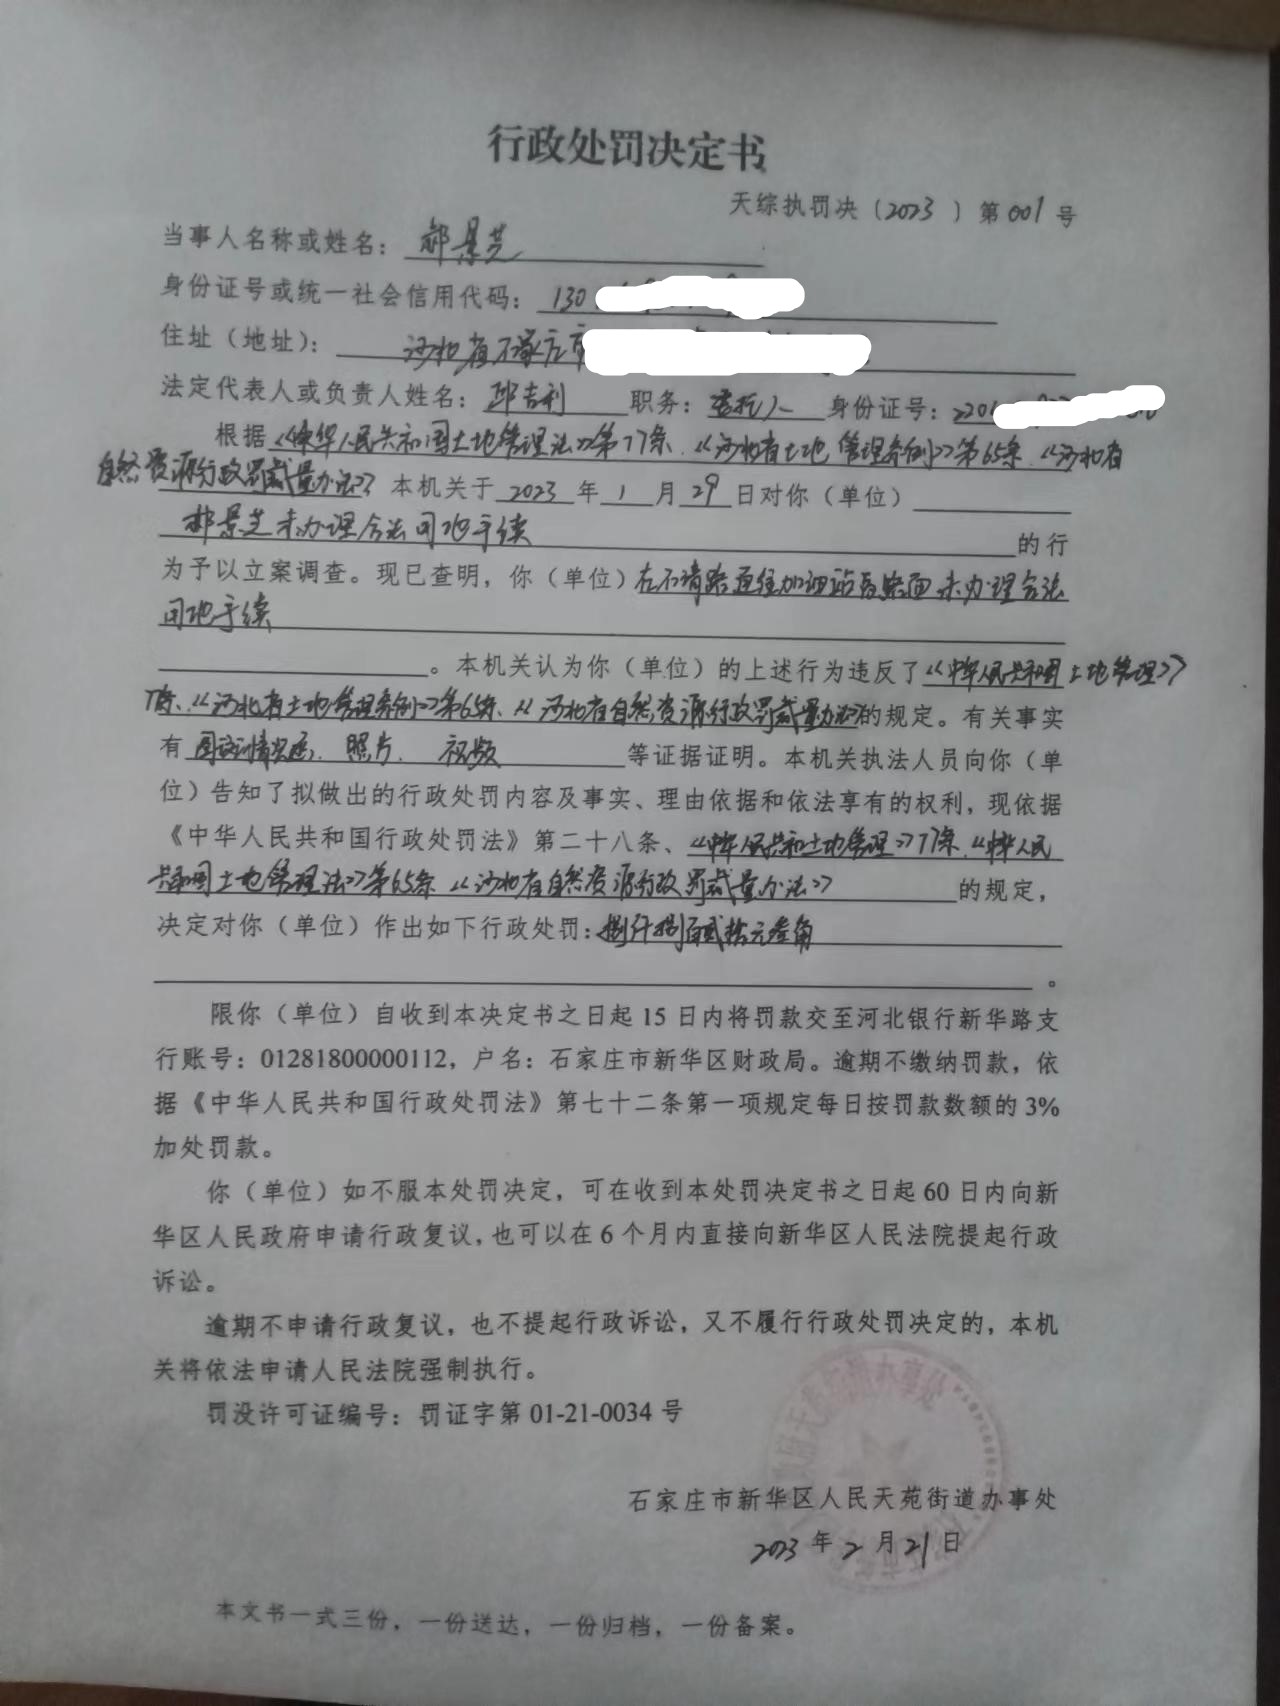 行政处罚决定书
天综执罚决〔2023〕第001号
当事人名称或姓名：郝景芝
身份证号或统一社会信用代码：130
住址（地址）：河北省石家庄市
法定代表人或负责人姓名：邱吉利 职务：委托人 身份证号：2201
根据《中华人民共和国土地管理法》第77条、《河北省土地管理条例》第65条、《河北省
自然资源行政罚裁量办法》本机关于2023年1月29日对你（单位）
郝景芝未办理合法用地手续的行
为予以立案调查。现已查明，你（单位）在石清路 加油站 未办理合法
用地手续
。本机关认为你（单位）的上述行为违反了《中华人民共和国土地管理》
77条、《河北省土地管理条例》第65条、《河北省自然资源行政罚裁量办法》的规定。有关事实
有 照片、视频等证据证明。本机关执法人员向你（单
位）告知了拟做出的行政处罚内容及事实、理由依据和依法享有的权利，现依据
《中华人民共和国行政处罚法》第二十八条、《中华人民共和土地管理》77条、《中华人民
共和国土地管理法》第65条《河北省自然资源行政罚裁量办法》的规定，
决定对你（单位）作出如下行政处罚：捌仟捌佰贰拾元叁角
。
限你（单位）自收到本决定书之日起15日内将罚款交至河北银行新华路支
行账号：01281800000112，户名：石家庄市新华区财政局。逾期不缴纳罚款，依
据《中华人民共和国行政处罚法》第七十二条第一项规定每日按罚款数额的3%
加处罚款。
你（单位）如不服本处罚决定，可在收到本处罚决定书之日起60日内向新
华区人民政府申请行政复议，也可以在6个月内直接向新华区人民法院提起行政
诉讼。
逾期不申请行政复议，也不提起行政诉讼，又不履行行政处罚决定的，本机
关将依法申请人民法院强制执行。
罚没许可证编号：罚证字第01-21-0034号
石家庄市新华区人民天苑街道办事处
2023年2月21日
本文书一式三份，一份送达，一份归档，一份备案。